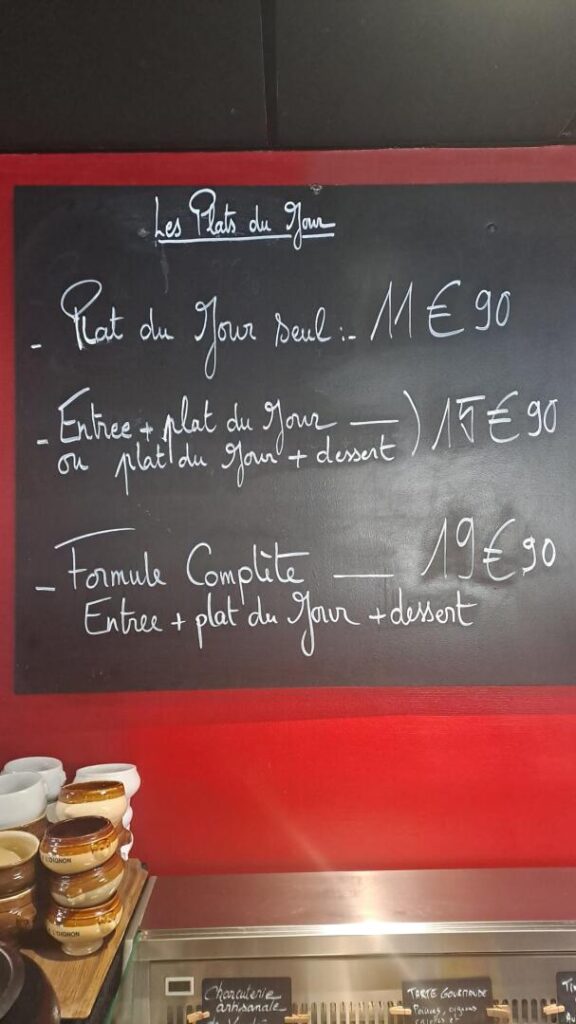 Les Plats du Jour
- Plat du Jour seul :- 11€90
- Entree + plat du Jour —) 15€90
ou plat du Jour + dessert
- Formule Complète — 19€90
Entree + plat du Jour + dessert
L'OIGNON
L'OIGNON
Charcuterie
artisanale
TARTE GOURMANDE
Poireaux, oignons